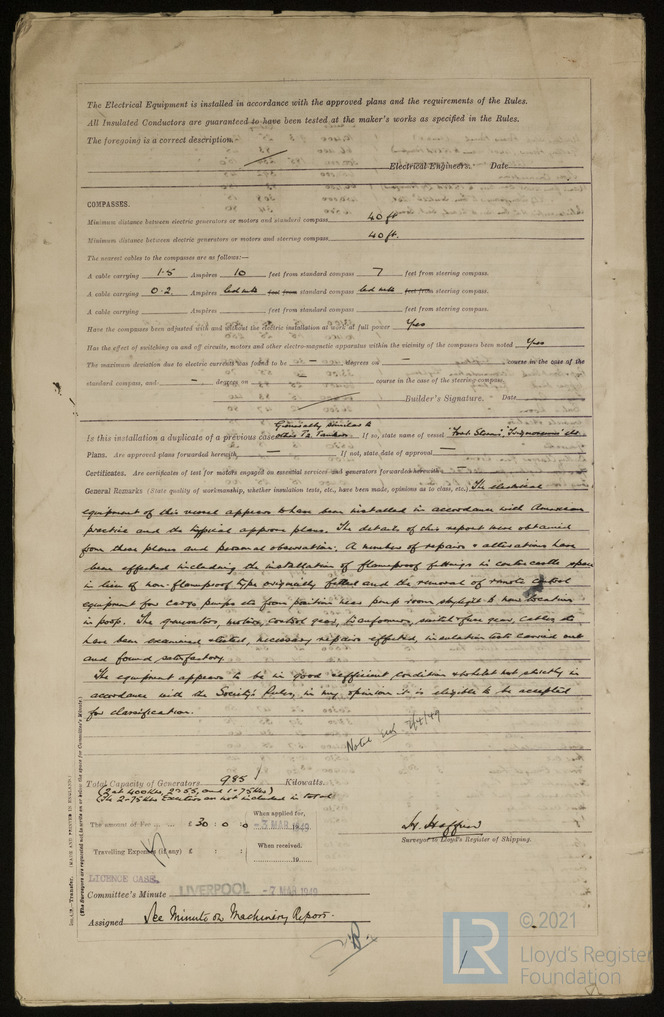 The Electrical Equipment is installed in accordance with the approved plans and the requirements of the Rules.
All Insulated Conductors are guaranteed to have been tested at the maker's works as specified in the Rules.
The foregoing is a correct description.
Electrical Engineers. Date
COMPASSES.
Minimum distance between electric generators or motors and standard compass 40 ft
Minimum distance between electric generators or motors and steering compass 40 ft.
The nearest cables to the compasses are as follows:—
A cable carrying 1.5 Ampères 10 feet from standard compass 7 feet from steering compass.
A cable carrying 0.2 Ampères led into feet from standard compass led into feet from steering compass.
A cable carrying Ampères feet from standard compass feet from steering compass.
Have the compasses been adjusted with and without the electric installation at work at full power Yes
Has the effect of switching on and off circuits, motors and other electro-magnetic apparatus within the vicinity of the compasses been noted Yes
The maximum deviation due to electric currents was found to be — degrees on — course in the case of the
standard compass, and — degrees on course in the case of the steering compass.
Builder's Signature. Date
Generally similar to
Is this installation a duplicate of a previous case other T2 Tankers. If so, state name of vessel
Plans. Are approved plans forwarded herewith — If not, state date of approval —
Certificates. Are certificates of test for motors engaged on essential services and generators forwarded herewith —
General Remarks (State quality of workmanship, whether insulation tests, etc., have been made, opinions as to class, etc.) The electrical
equipment of this vessel appears to have been installed in accordance with American
practice and the typical approved plans. The details of this report were obtained
from these plans and personal observation. A number of repairs & alterations have
been effected including the installation of flameproof fittings in centrecastle space
in lieu of non-flameproof type originally fitted and the removal of remote control
equipment for cargo pumps etc from position near pump room skylight to new location
in poop. The generators, motors, control gear, transformers, switch & fuse gear, cables etc
have been examined & tested, necessary repairs effected, insulation tests carried out
and found satisfactory.
The equipment appears to be in good & efficient condition & whilst not strictly in
accordance with the Society's Rules, in my opinion it is eligible to be accepted
for classification.
Noted 7/4/49
Total Capacity of Generators 985 Kilowatts.
The amount of Fee £ 30 : 0 : 0 When applied for, -3 MAR 1949
Travelling Expenses (if any) £ : : When received, 19
Surveyor to Lloyd's Register of Shipping.
LICENCE CASE.
Committee's Minute LIVERPOOL -7 MAR 1949
Assigned See Minute on Machinery Report.
(MADE AND PRINTED IN ENGLAND.)
(The Surveyors are requested not to write on or below the space for Committee's Minute.)
LR
© 2021
Lloyd's Register
Foundation